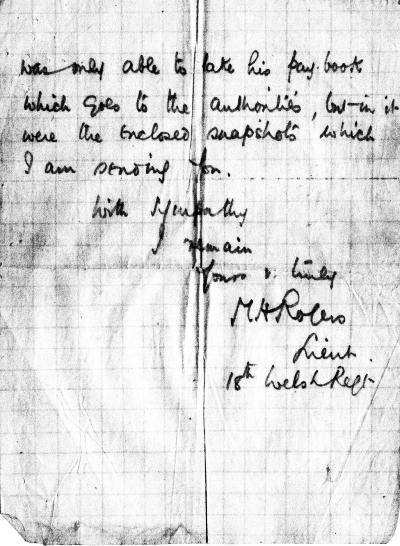 was only able to take his pay-book
which goes to the authorities, but in it
were the enclosed snapshots which
I am sending you.
With sympathy
I remain
Yours v. truly
M H Rogers
Lieut.
18th Welsh Regt